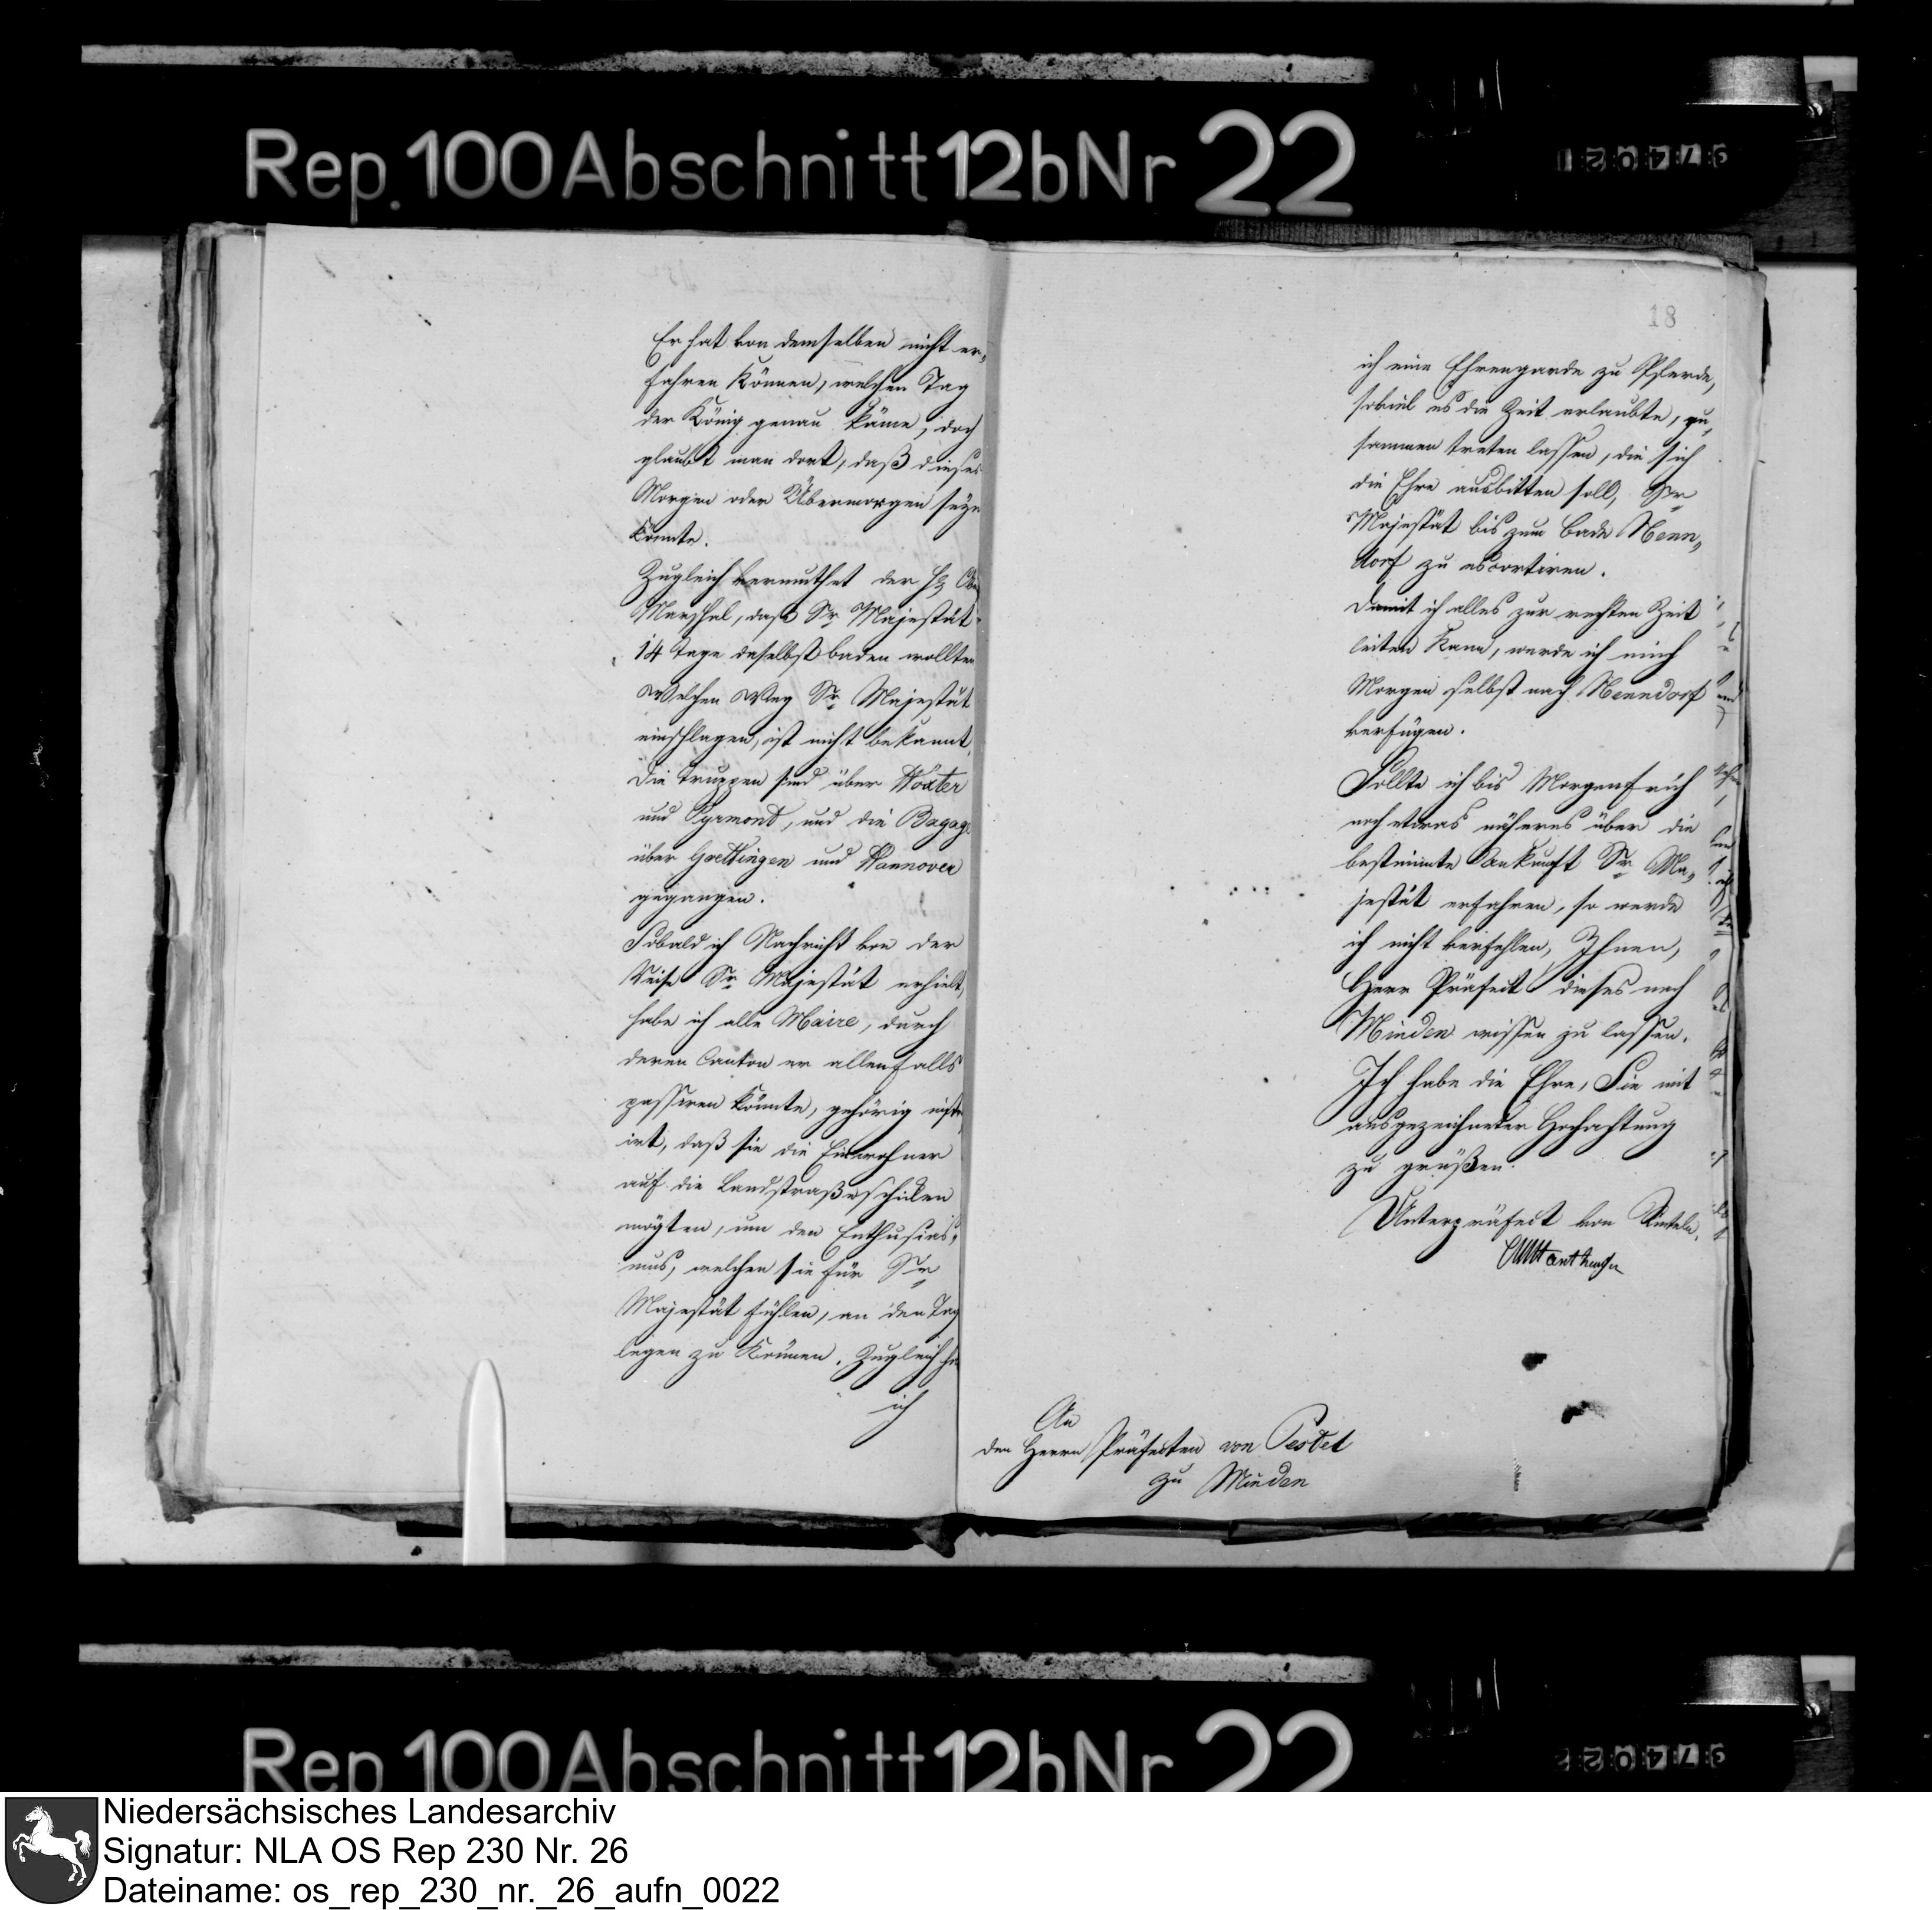 Rep. 100 Abschnitt 12b Nr 22
97402
Er hat von demselben nicht er„
fahren können, welchen Tag
der König genau käme, doch
glaubt man dort, daß dieses
Morgen oder Übermorgen seyn
könnte.
Zugleich vermuthet der H.
Marschal, dass Sr. Majestät
14 Tage daselbst baden wollten
Welchen Weg Sr. Majestät
einschlagen, ist nicht bekannt.
Die Truppen sind über Höxter
und Pyrmont, und die Bagage
über Goettingen und Hannover
gegangen.
Sobald ich Nachricht von der
Reise Sr. Majestät erhielt,
habe ich alle Maire, durch
deren Canton er allenfalls
passiren könnte, gehörig
irt, daß sie die Einwohner
auf die Landstraße schicken
mögten, um den Enthusias„
mus, welchen sie für Sr.
Majestät fühlen, an den Tag
legen zu können. Zugleich
ich
18
ich eine Ehrengarde zu Pferde,
soviel es die Zeit erlaubte, zu„
sammen treten lassen, die sich
die Ehre ausbitten soll, Sr.
Majestät bis zum Bade Nenn„
dorf zu escortiren.
Damit ich alles zur rechten Zeit
leiten kann, werde ich mich
Morgen selbst nach Nenndorf
verfügen.
Sollte ich bis Morgen früh
noch etwas näheres über die
bestimmte Ankunft Sr. Ma„
jestät erfahren, so werde
ich nicht verfehlen, Ihnen,
Herr Präfect dieses nach
Minden wissen zu lassen.
Ich habe die Ehre, Sie mit
ausgezeichneter Hochachtung
zu grüßen.
Unterpräfect von Rinteln.
An
den Herrn Präfecten von Pestel
zu Minden
Rep 100 Abschnitt 12b Nr 22
97402
Niedersächsisches Landesarchiv
Signatur: NLA OS Rep 230 Nr. 26
Dateiname: os_rep_230_nr._26_aufn_0022